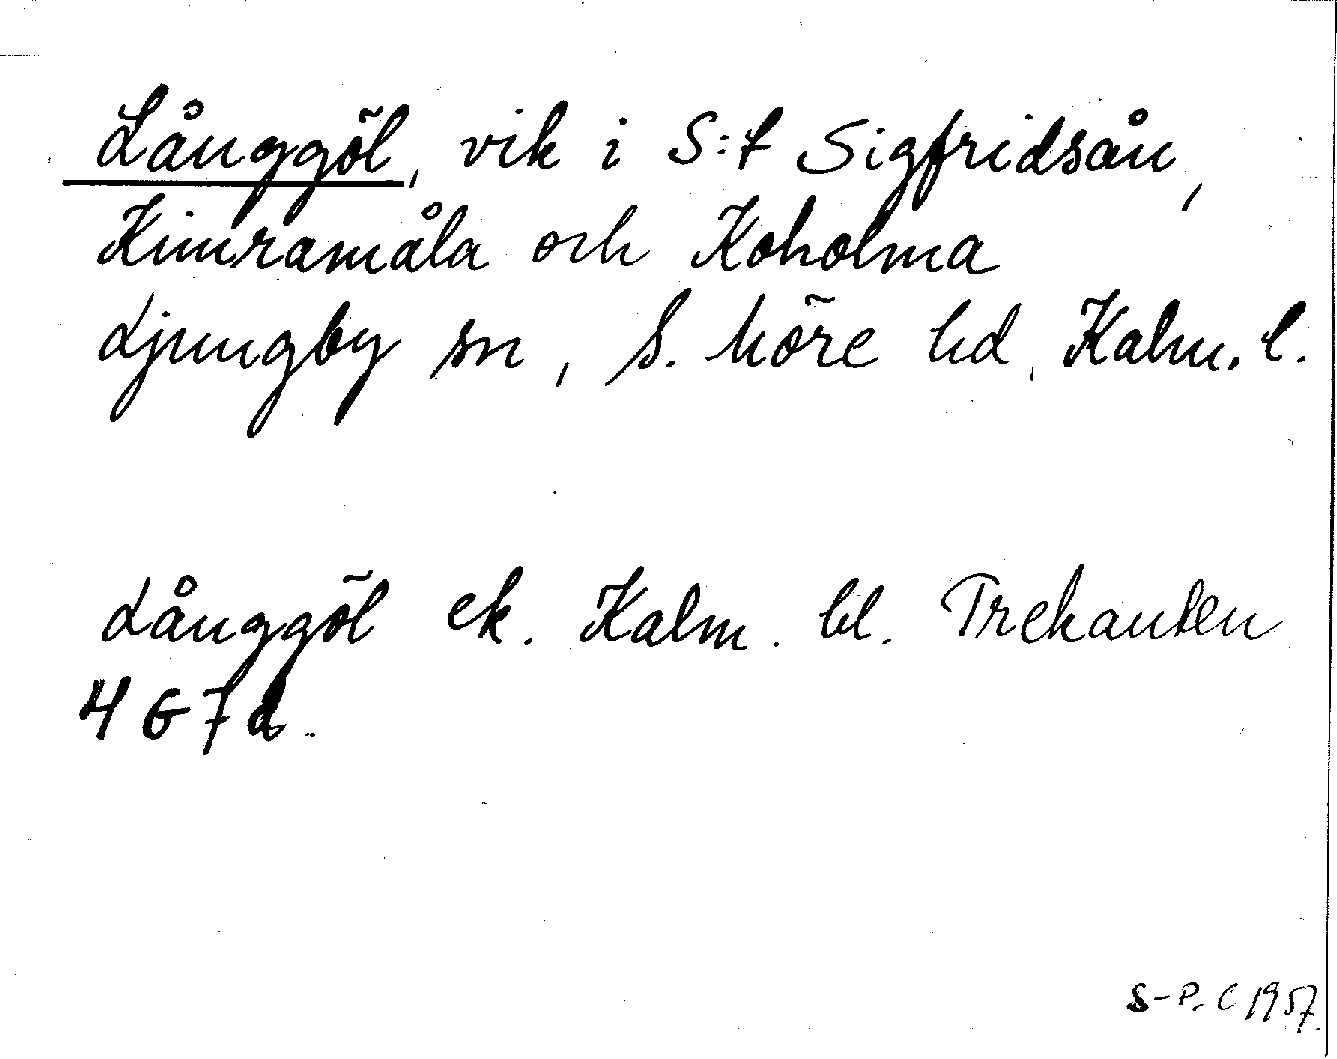 Långgöl, vik i S:t Sigfridsån,
Kimramåla och Koholma
Ljungby sn, S. Möre hd, Kalm. l.
Långgöl ek. Kalm. bl. Trekanten
4 G 7 d.
S-P. C 1957.